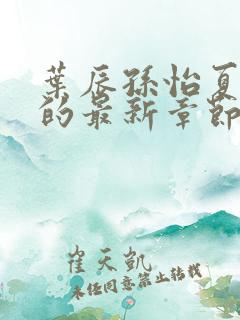 葉辰孫怡夏
的最新章節
崔天凱
未经同意禁止转载